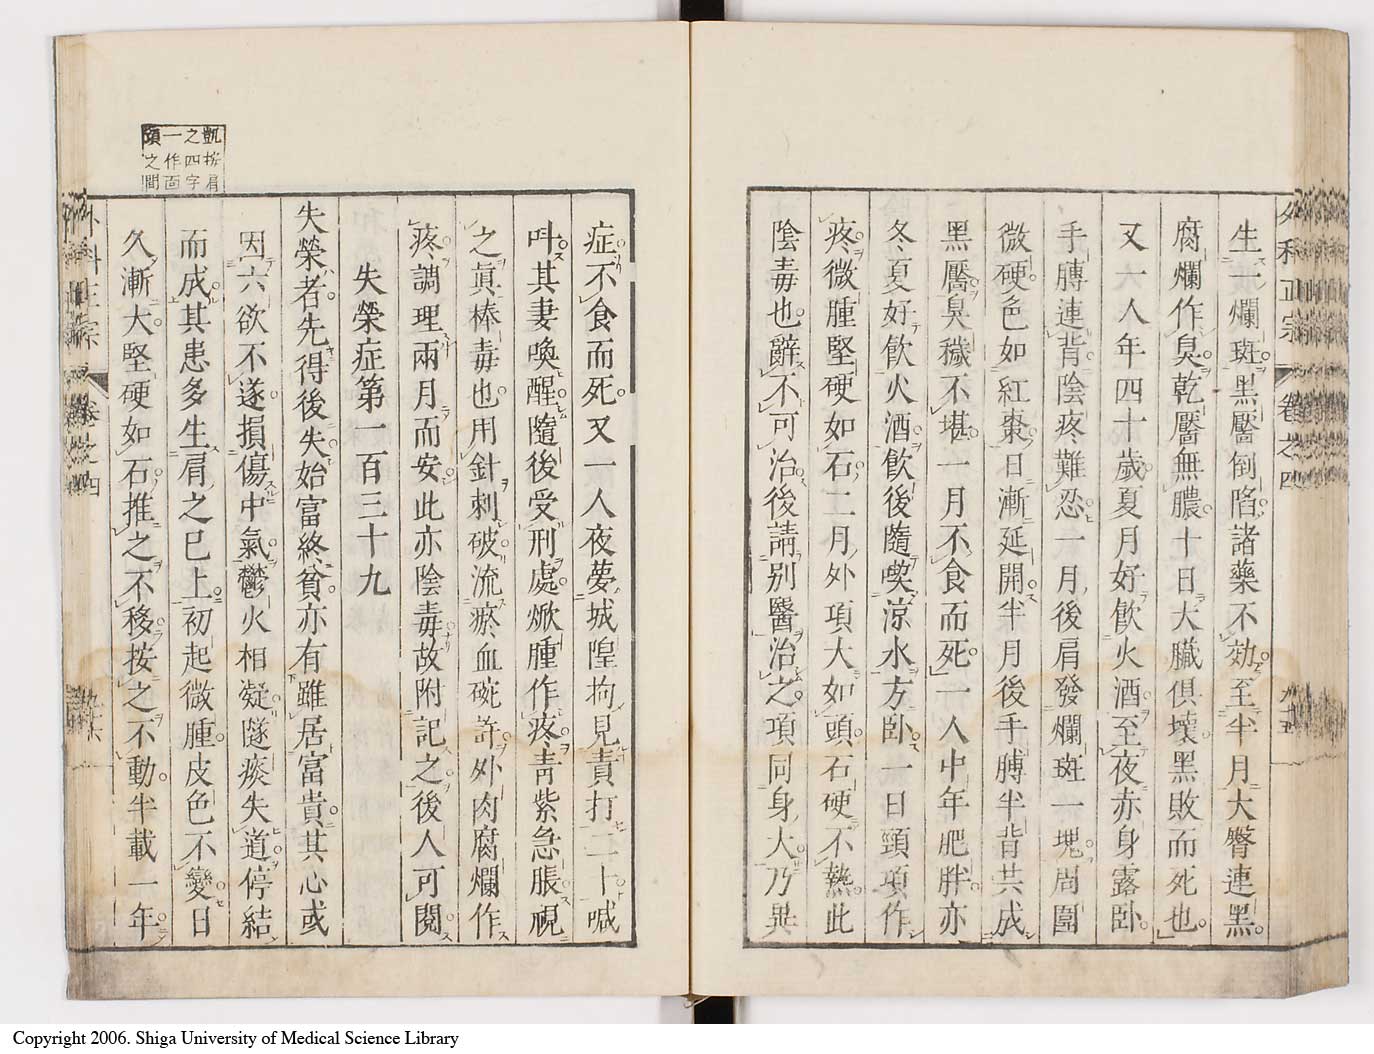 外科正宗 卷之四
生一爛斑黒靨倒陷諸藥不効至半月大臀連黒
腐爛作臭乾靨無膿十日大臟俱壊黒敗而死也
又六人年四十歲夏月好飮火酒至夜赤身露卧
手膊連背陰疼難忍一月後肩發爛斑一塊周圍
微硬色如紅棗日漸延開半月後手膊半背共成
黒靨臭穢不堪一月不食而死一人中年肥胖亦
冬夏好飮火酒飮後隨喫涼水方卧一日頸項作
疼微腫堅硬如石二月外項大如頭石硬不熱此
陰毒也辭不可治後請別醫治之項同身大乃異
症不食而死又一人夜夢城隍拘見責打二十喊
呌其妻喚醒隨後受刑處焮腫作疼靑紫急脹視
之眞棒毒也用針刺破流瘀血碗許外肉腐爛作
疼調理兩月而安此亦陰毒故附記之後人可閱
失榮症第一百三十九
失榮者先得後失始富終貧亦有雖居富貴其心或
因六欲不遂損傷中氣鬱火相凝隧痰失道停結
而成其患多生肩之已上初起微腫皮色不變日
久漸大堅硬如石推之不移按之不動半載一年
外科正宗 卷之四
凱按肩
之四字
一作面
頸之間
Copyright 2006. Shiga University of Medical Science Library